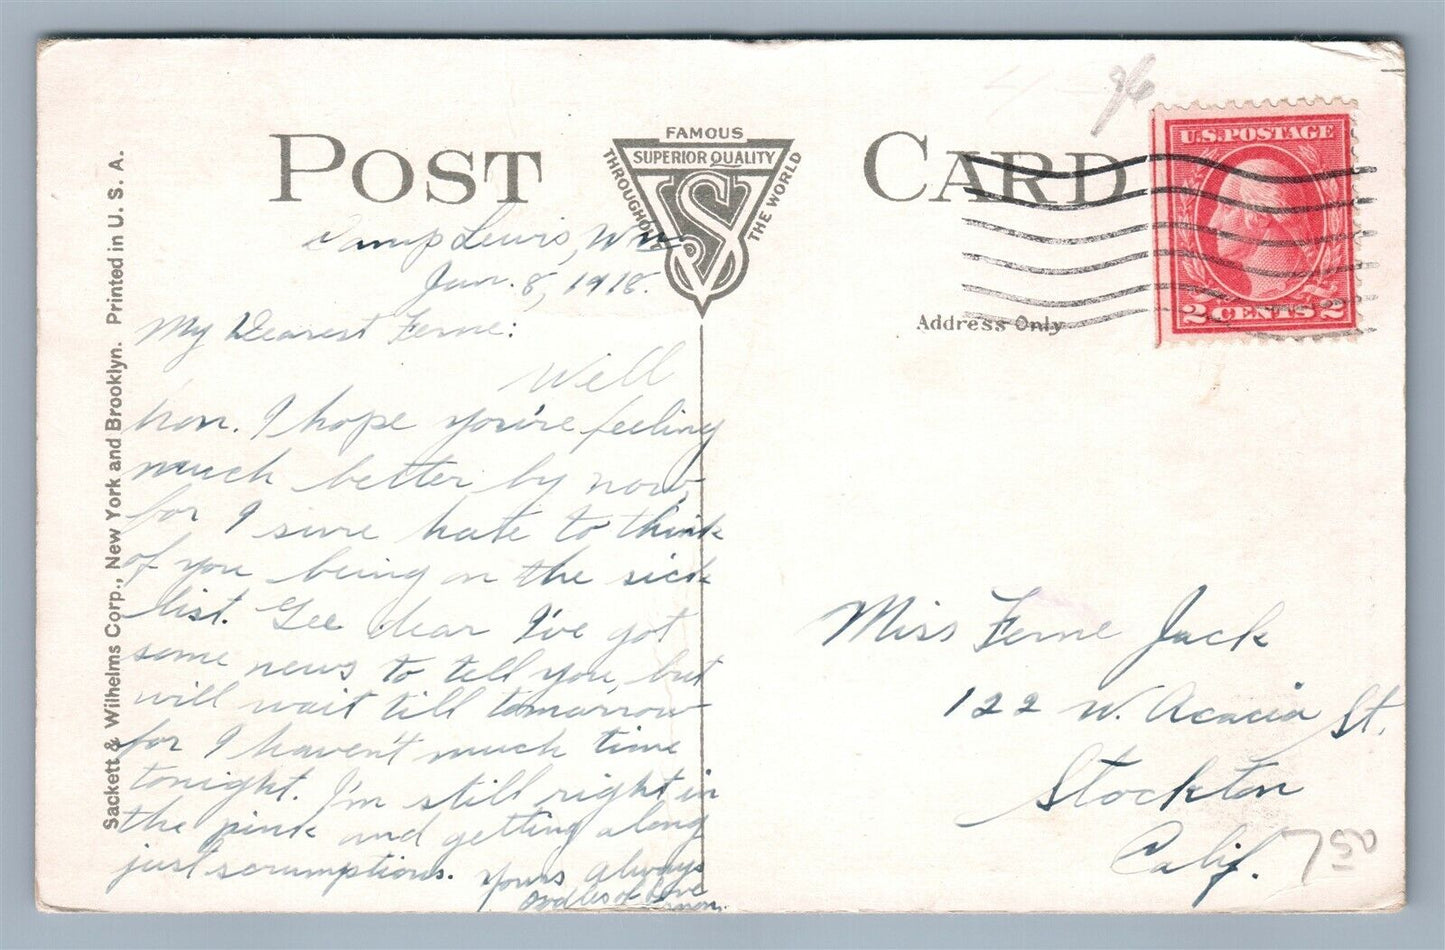 POST CARD
FAMOUS
SUPERIOR QUALITY
THROUGHOUT
THE WORLD
U.S. POSTAGE
2 CENTS 2
Address Only
Sackett & Wilhelms Corp., New York and Brooklyn. Printed in U. S. A.
Camp Lewis, Wn.
Jan. 8, 1918.
My Dearest Ferne:
Well
hon. I hope you're feeling
much better by now,
for I sure hate to think
of you being on the sick
list. Gee dear I've got
some news to tell you, but
will wait till tomorrow
for I haven't much time
tonight. I'm still right in
the pink and getting along
just scrumptious. Yours Always
Oodles of Love
Miss Ferne Jack
122 W. Acacia St.
Stockton
Calif.
7 50